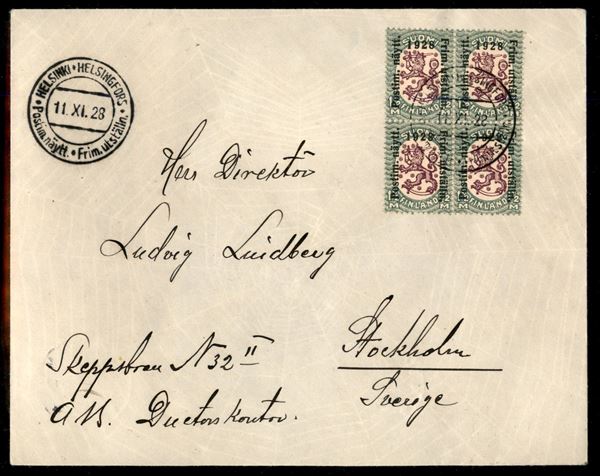 HELSINKI • HELSINGFORS
11. XI. 28
Postim. näytt. • Frim. utställn.
SUOMI SUOMI
1928 1928
Postim. näytt. Frim. utställn. Postim. näytt. Frim. utställn.
FINLAND FINLAND
1928 1928
Postim. näytt. Frim. utställn. Postim. näytt. Frim. utställn.
FINLAND FINLAND
Herr Direktör
Ludvig Lindberg
Skeppsbron N 32 II
Stockholm
Sverige